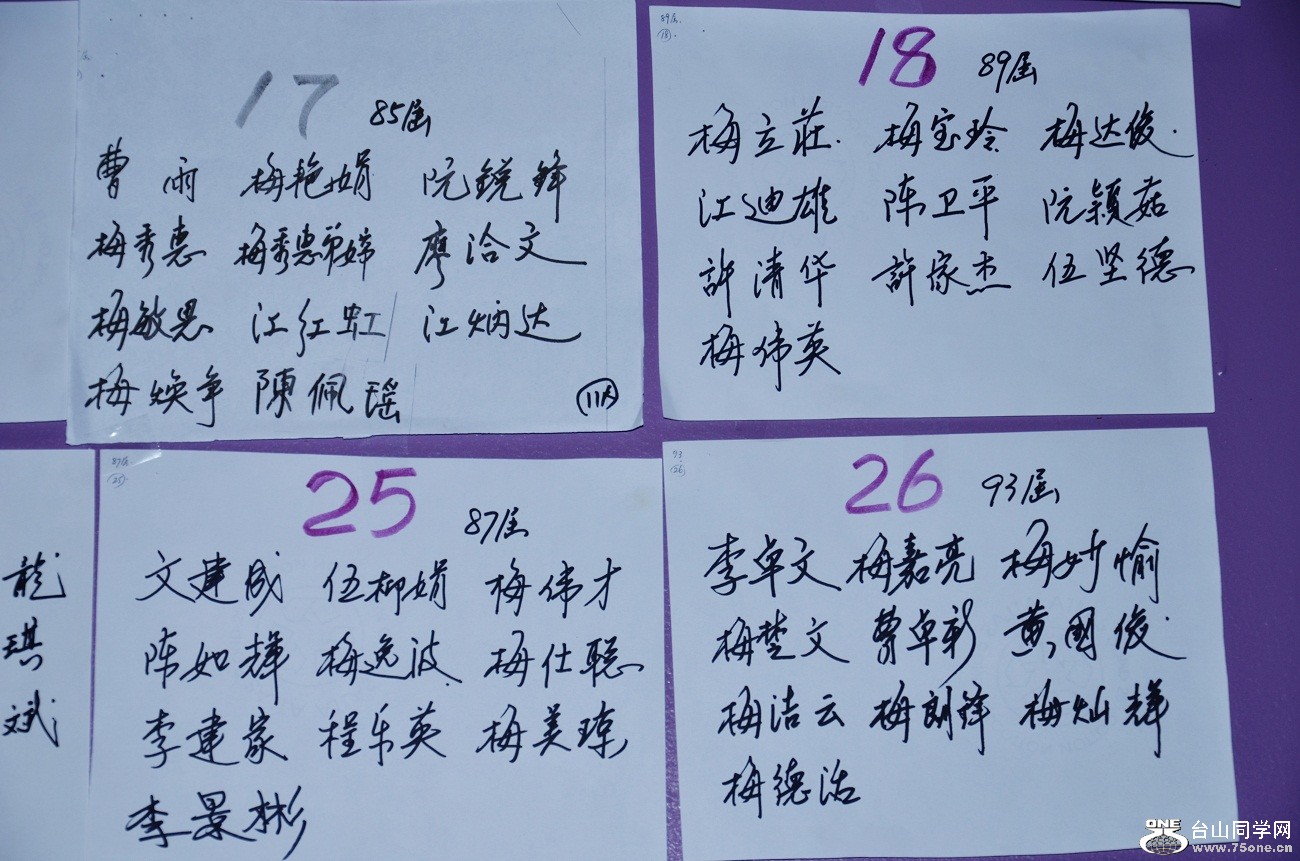 17 85届
曹雨 梅艳娟 阮銳鋒
梅秀惠 梅秀惠弟婦 廖洽文
梅敏恩 江红虹 江炳达
梅焕争 陳佩瑶
11人
89届.
(18).
18 89届
梅立莊. 梅宝玲 梅达俊.
江迪雄 陈卫平 阮穎菇
許清华 許家杰 伍坚德
梅伟英
龍
琪
斌
87届
(25)
25 87届
文建成 伍柳娟 梅伟才
陈如輝 梅逸波 梅仕聪
李建家 程乐英 梅美琼
李景彬
93
(26)
26 93届
李卓文 梅嘉亮 梅妙愉
梅楚文 曹卓彩 黄國俊
梅洁云 梅朗鋒 梅灿輝
梅德活
ONE 台山同学网
www.75one.cn